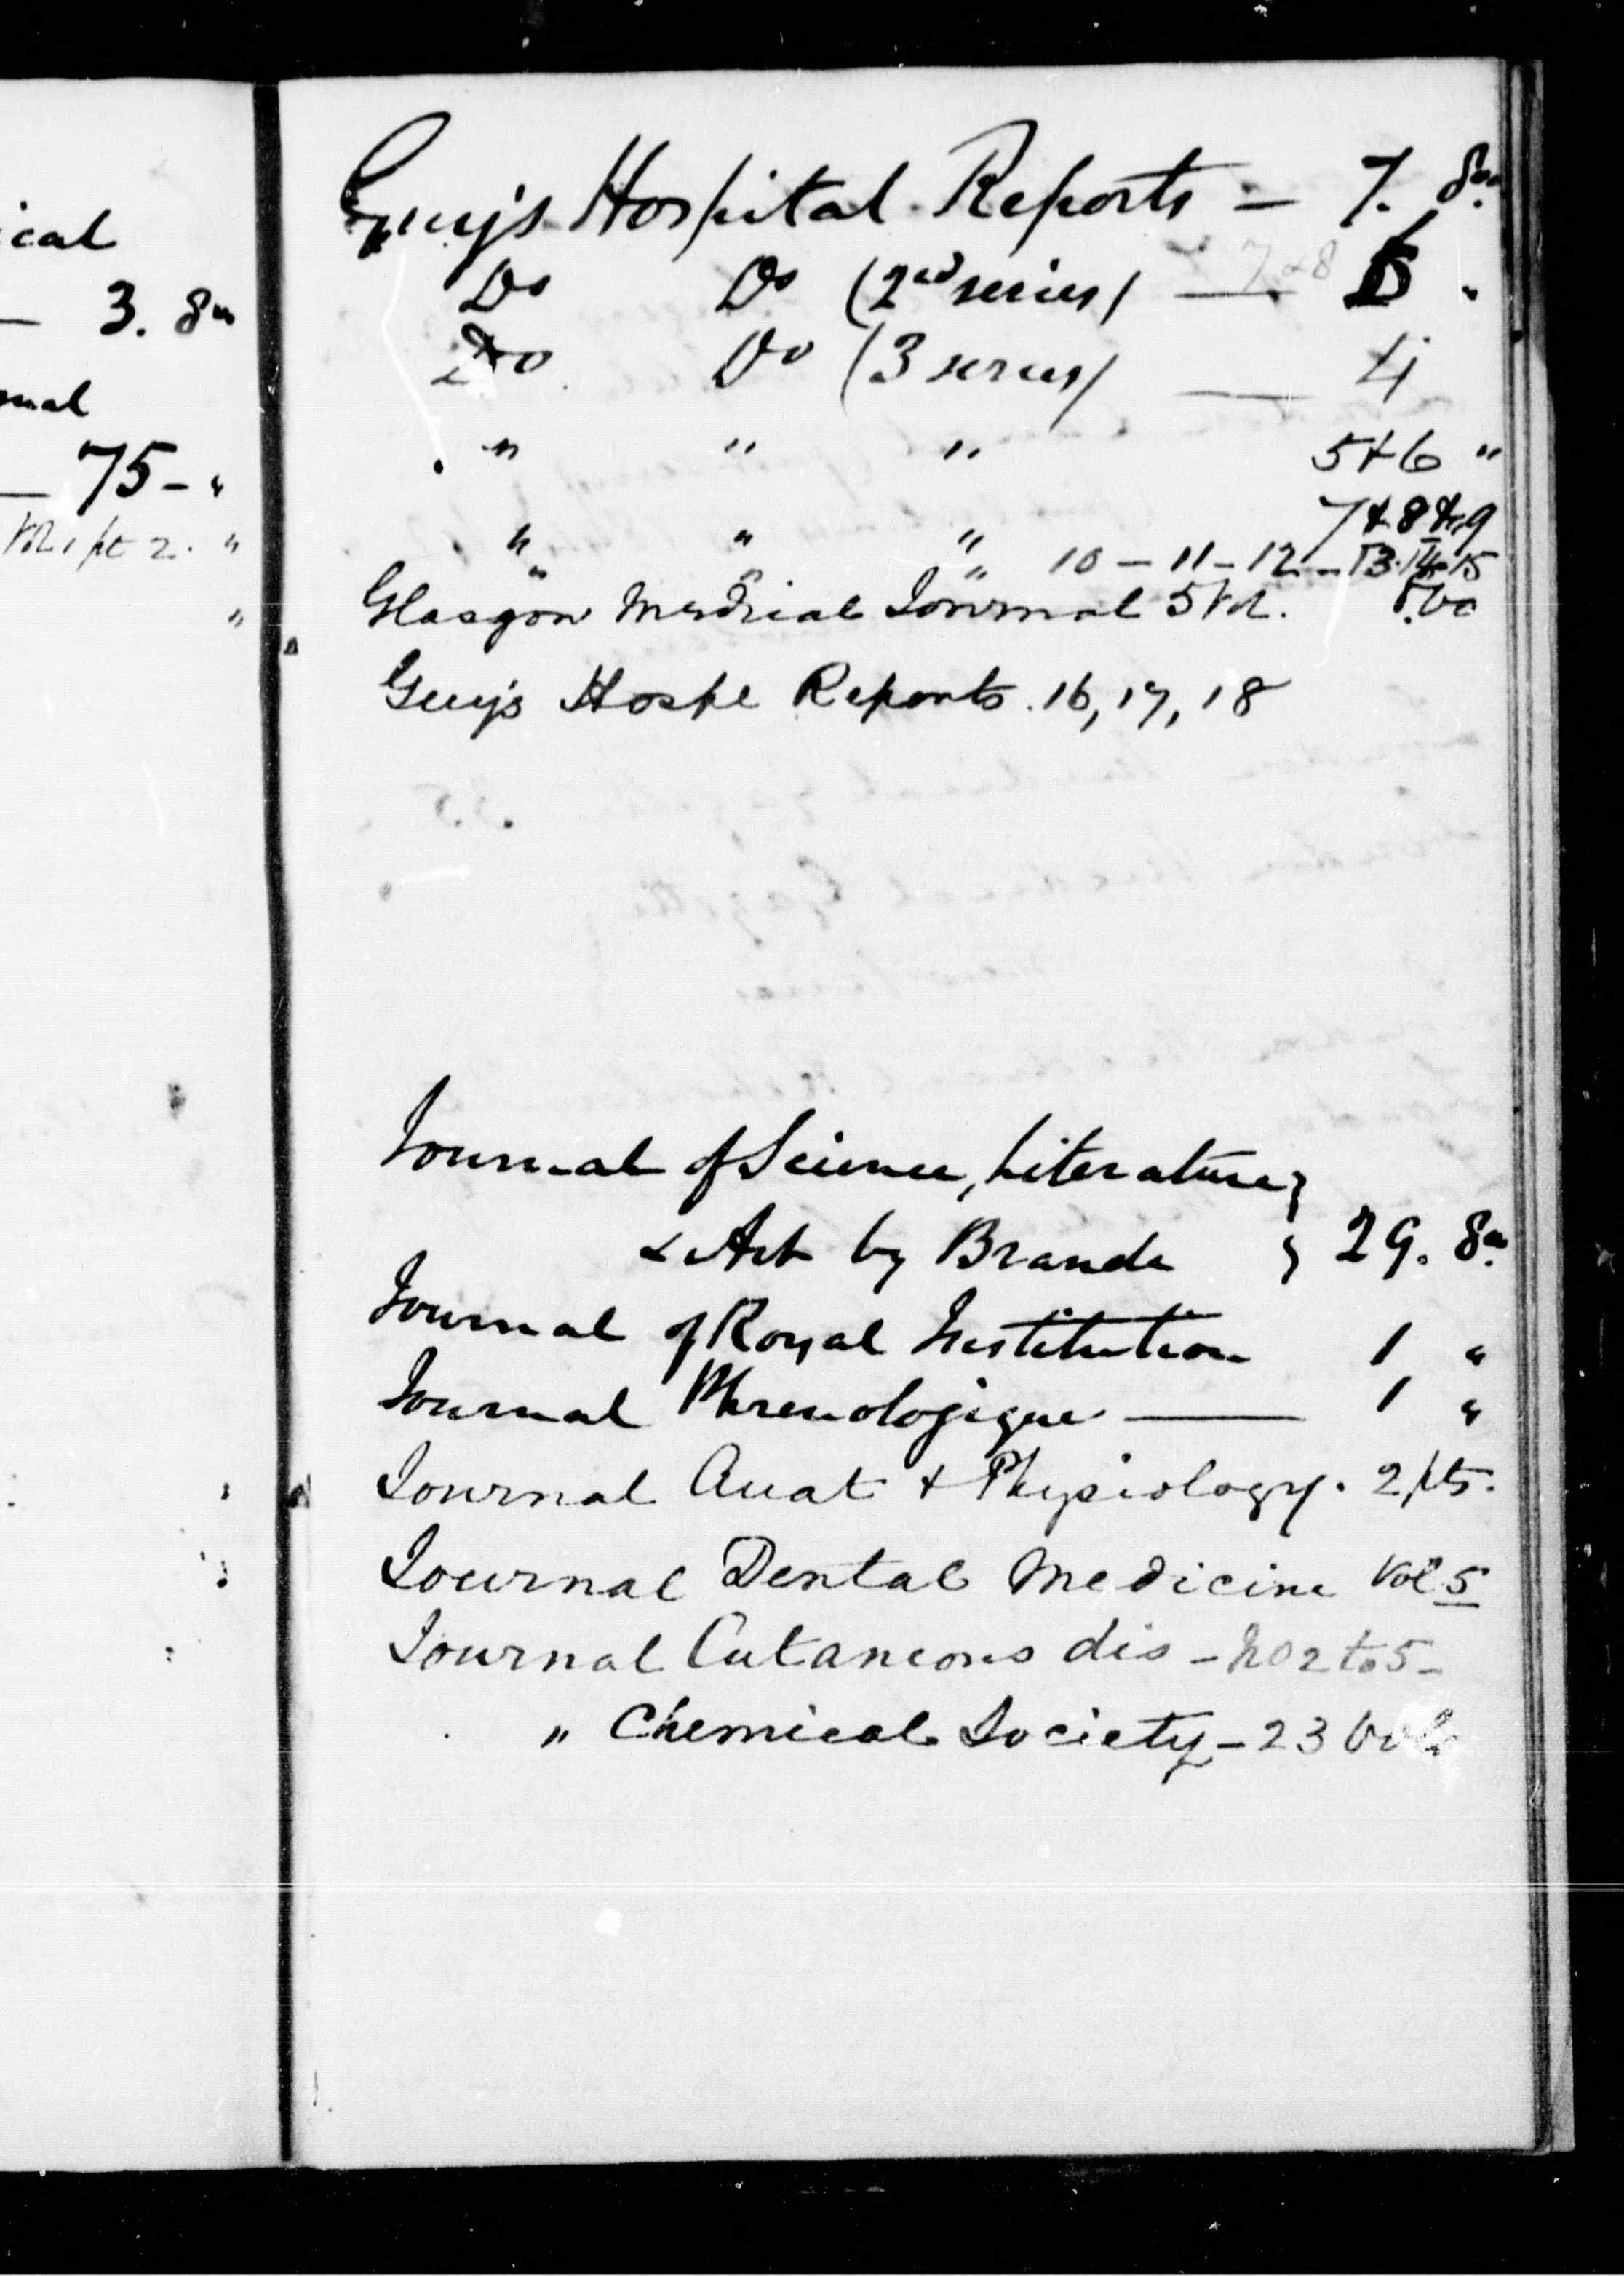 ical
— 3. 8vo
rnal
— 75 – "
Vol 1 pt 2. "
"
Guy's Hospital Reports — 7. 8vo.
Do Do (2nd series) — 7 & 8 "
Do Do (3 series) — 4
" " " 5 & 6 "
" " " 7 & 8 & 9
" " " 10 – 11 – 12 – 13. 14. 15
Glasgow Medical Journal 5 Vol. 8vo
Guy's Hospl Reports. 16, 17, 18
Journal of Science, Literature }
& Art by Brande } 29. 8vo.
Journal of Royal Institution 1 "
Journal Phrenologique — 1 "
Journal Anat & Physiology. 2 pts.
Journal Dental Medicine Vol 5
Journal Cutaneous dis – No 2 to 5 –
" Chemical Society – 23 Vols